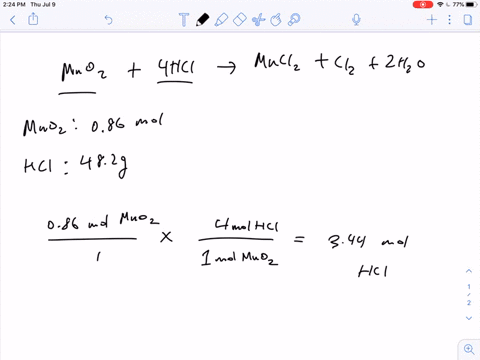 2:24 PM Thu Jul 9
77%
MnO₂ + 4HCl → MnCl₂ + Cl₂ + 2H₂O
MnO₂: 0.86 mol
HCl: 48.2g
0.86 mol MnO₂ / 1 × 4 mol HCl / 1 mol MnO₂ = 3.44 mol
HCl
1
/
2